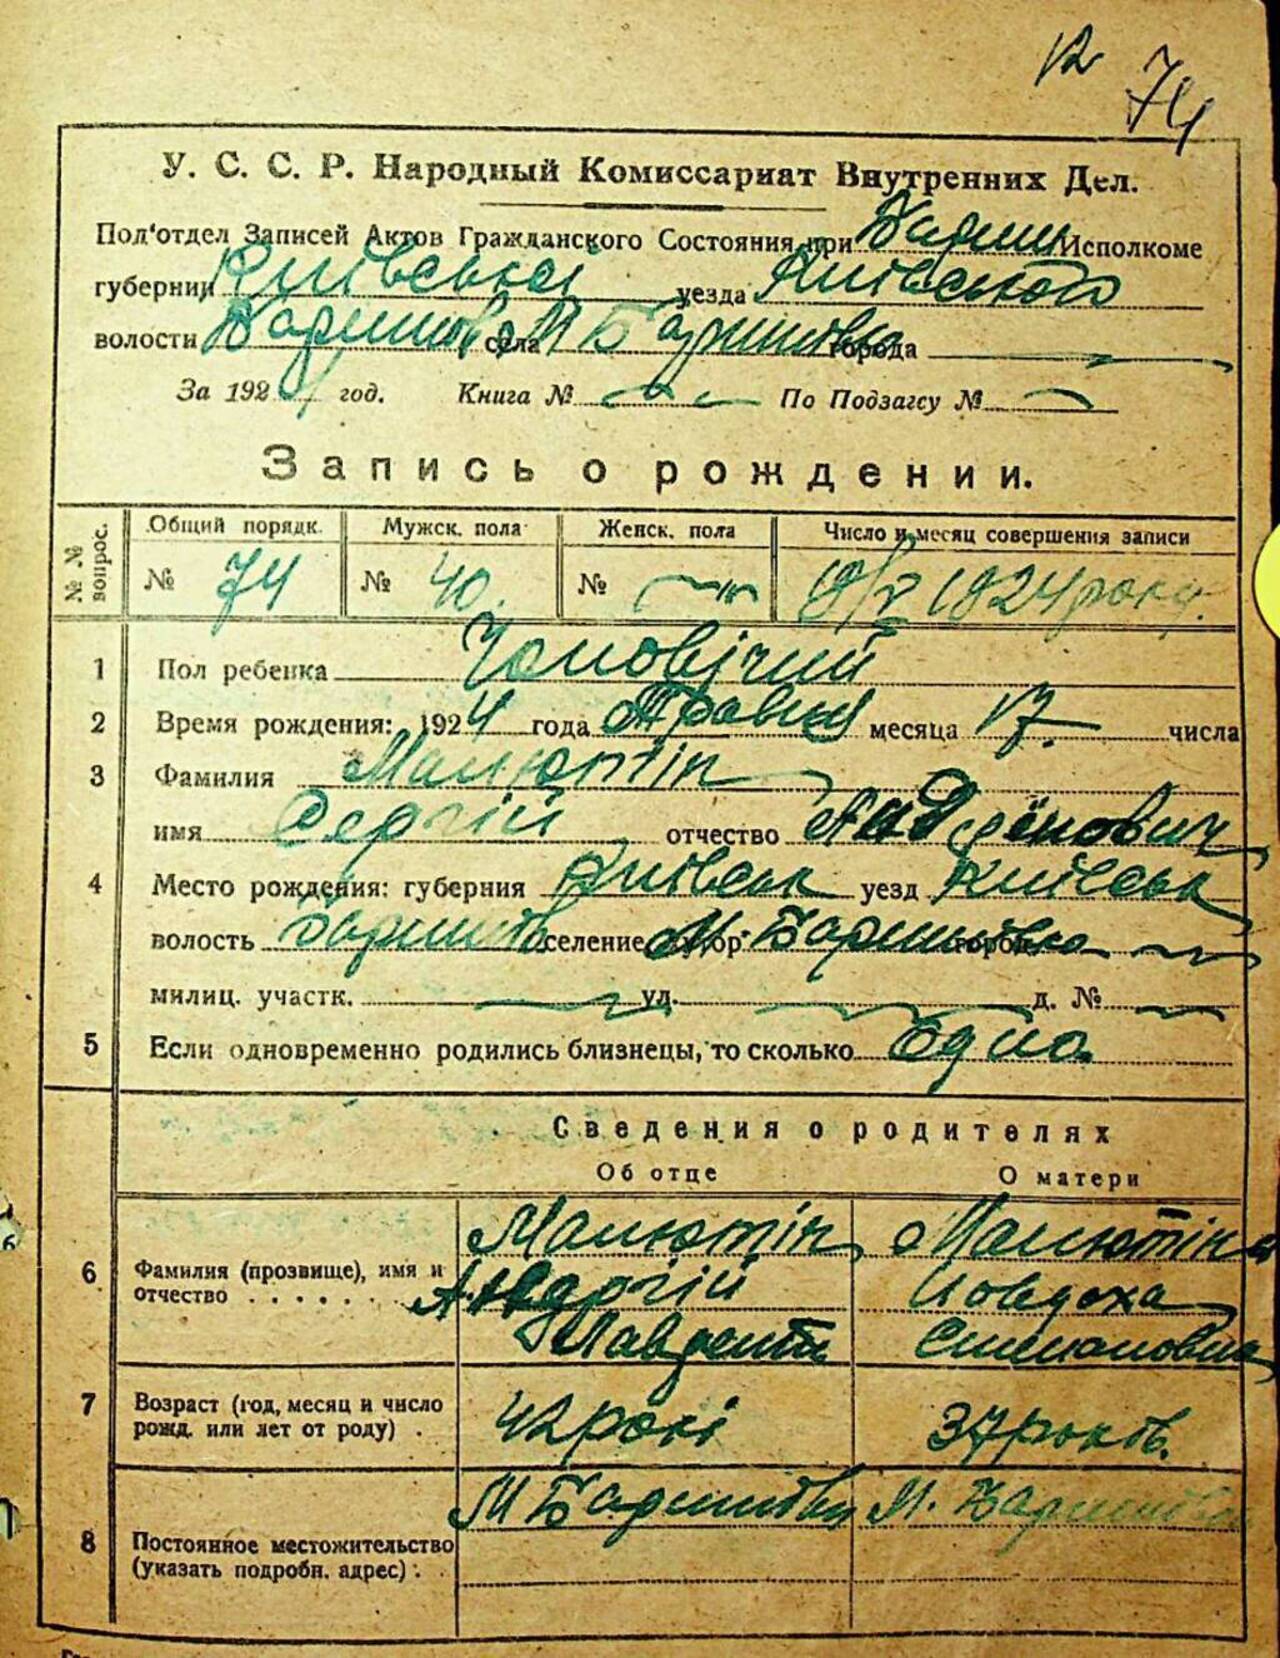 12 74
У. С. С. Р. Народный Комиссариат Внутренних Дел.
Под'отдел Записей Актов Гражданского Состояния при Бариш Исполкоме
губернии Київської уезда Київського
волости Баришівс села М Баришівка города
За 1924 год. Книга № По Подзагсу №
Запись о рождении.
№ № вопрос. Общий порядк. Мужск. пола Женск. пола Число и месяц совершения записи
№ 74 № 40. № 19/V 1924 року.
1 Пол ребенка Чоловічий
2 Время рождения: 1924 года Травня месяца 17 числа
3 Фамилия Малютін
имя Сергій отчество
4 Место рождения: губерния Київськ уезд Київськ
волость Баришів селение М. Баришівка город
милиц. участк. ул. д. №
5 Если одновременно родились близнецы, то сколько Одна
Сведения о родителях
Об отце О матери
Малютін Малютіна
6 Фамилия (прозвище), имя и
отчество . . . . . . Йовдоха
Лаврент Степановна
7 Возраст (год, месяц и число
рожд. или лет от роду) . 42 рокі 37 років.
М Баришівка М. Баришівка
8 Постоянное местожительство
(указать подробн. адрес) .